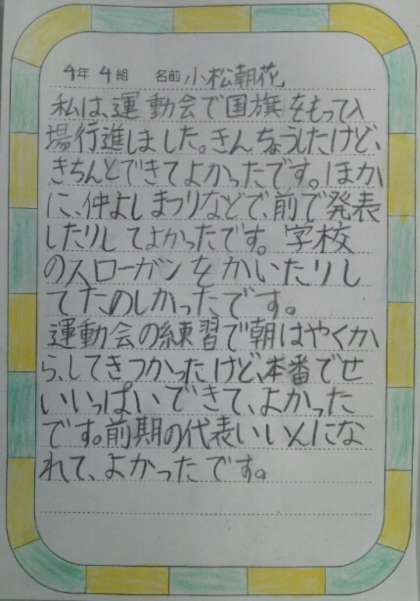 4年 4組 名前 小松朝花
私は、運動会で国旗をもって入
場行進しました。きんちょうしたけど、
きちんとできてよかったです。ほか
に、仲よしまつりなどで、前で発表
したりしてよかったです。学校
のスローガンをかいたりし
てたのしかったです。
運動会の練習で朝はやくか
ら、してきつかったけど、本番でせ
いいっぱいできて、よかった
です。前期の代表いいんにな
れて、よかったです。